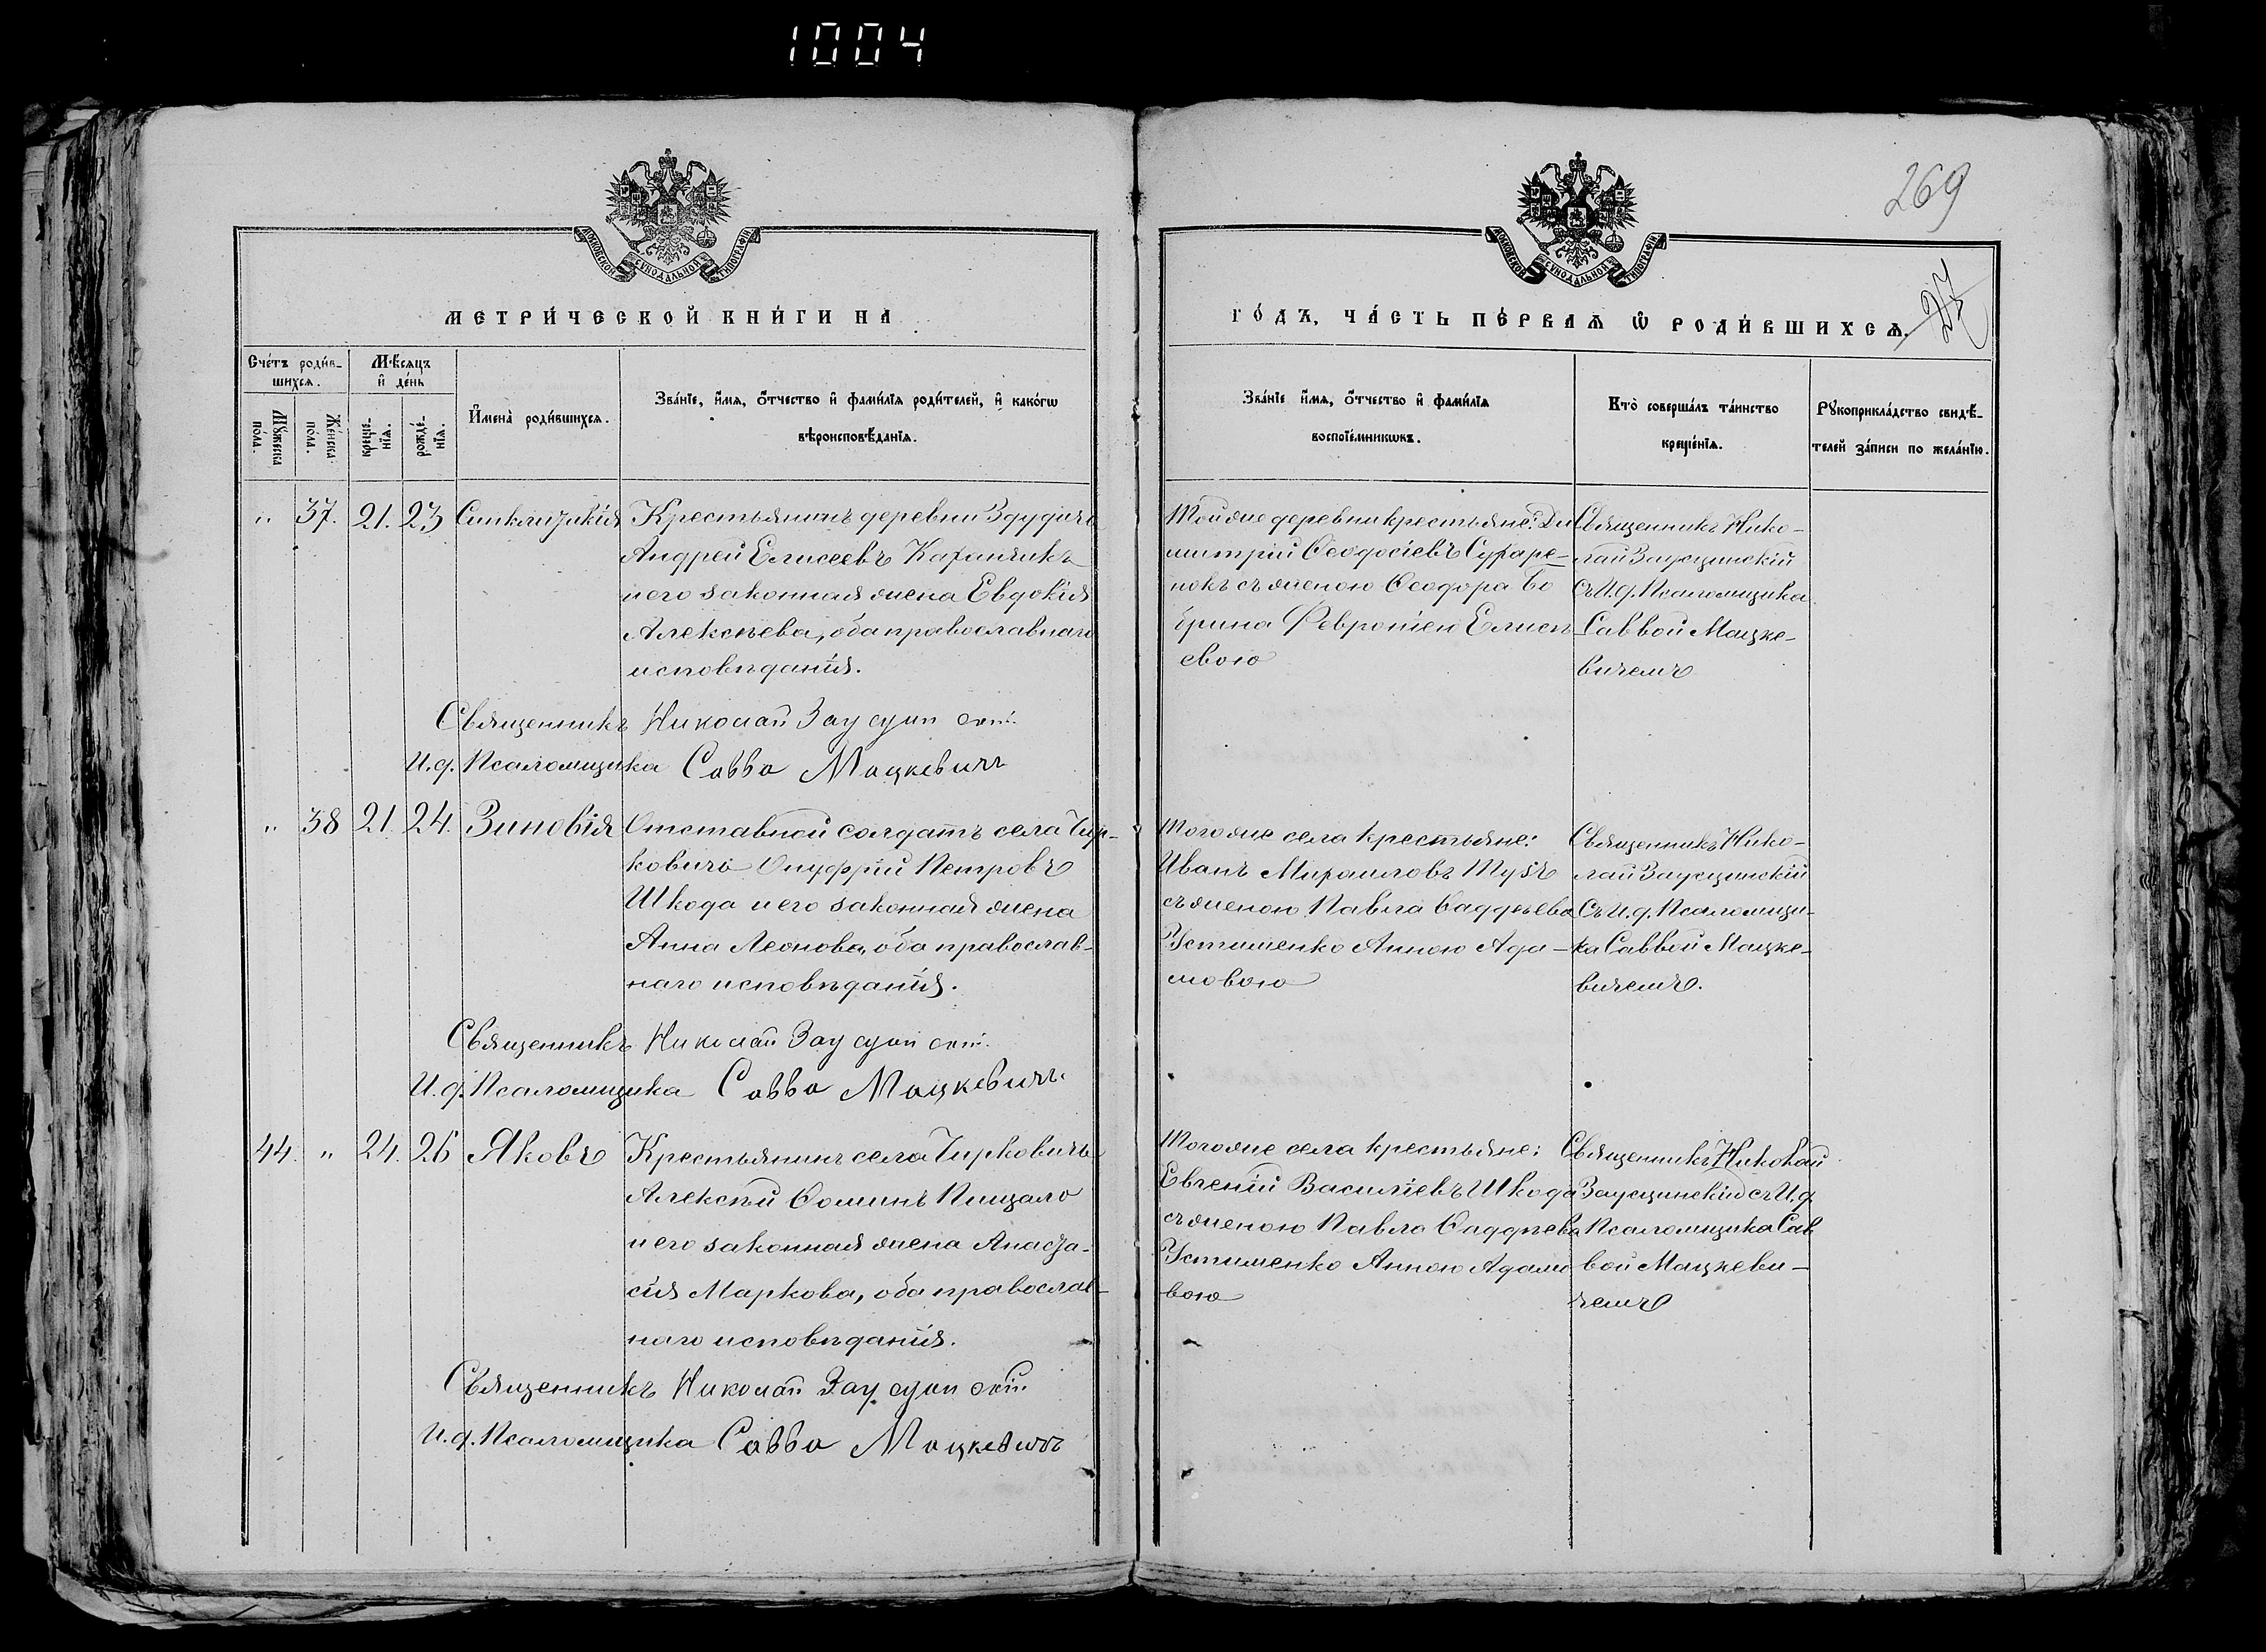 1004
269
МОСКОВСКОЙ СѴНОДАЛЬНОЙ ТИПОГРАФІИ
МОСКОВСКОЙ СѴНОДАЛЬНОЙ ТИПОГРАФІИ
МЕТРИ́ЧЕСКОЙ КНИ́ГИ НА
ГО́ДЪ, ЧА́СТЬ ПЕ́РВАЯ Ѡ РОДИ́ВШИХСЯ.
Сче́тъ роди́в-
шихся.
Мѣ́сяцъ
и де́нь
Му́жеска
по́ла.
Же́нска
по́ла.
креще́-
нїя.
рожде́-
нїя.
Имена̀ роди́вшихся.
Зва́нїе, и́мя, о́тчество и фами́лїя роди́телей, и како́гѡ
вѣроисповѣ́данїя.
Зва́нїе и́мя, о́тчество и фами́лїя
воспрїе́мникѡвъ.
Кто̀ соверша́лъ та́инство
креще́нїя.
Рукоприкла́дство свидѣ́-
телей за́писи по жела́нїю.
" 37. 21. 23 Синклитикія Крестьянинъ деревни Здудичъ
Андрей Елисеевъ
и его законная жена Евдокія
Алексѣева, оба православнаго
исповѣданія.
Тойже деревни крестьяне: Ди
митрій Ѳеодосіевъ
нокъ съ женою Ѳеодора Бо
брика Февроніею Елисѣ
евою
Священникъ Нико-
лай Заусцинскій
съ И.д. Псаломщика
Саввой Мацке-
вичемъ
Священникъ Николай Заусцинскій
И.д. Псаломщика Савва Мацкевичъ
" 38 21. 24. Зиновія Отставной солдатъ села Чир-
ковичъ Онуфрій Петровъ
Шкода и его законная жена
Анна Леонова, оба православ-
наго исповѣданія.
Тогоже села крестьяне:
Иванъ Михаиловъ Тузъ
съ женою Павла Ѳаддѣева
Устименко Анною Ада-
мовою
Священникъ Нико-
лай Заусцинскій
съ И.д. Псаломщи-
ка Саввой Мацке-
вичемъ.
Священникъ Николай Заусцинскій
И.д. Псаломщика Савва Мацкевичъ
44. " 24. 26 Яковъ Крестьянинъ села Чирковичъ
Алексѣй Ѳоминъ Пищало
и его законная жена Анаста-
сія Маркова, оба православ-
наго исповѣданія.
Тогоже села крестьяне:
Евгеній Василіевъ Шкода
съ женою Павла Ѳаддѣева
Устименко Анною Адамо
вою
Священникъ Николай
Заусцинскій съ И.д.
Псаломщика Сав
вой Мацкеви-
чемъ
Священникъ Николай Заусцинскій
И.д. Псаломщика Савва Мацкевичъ